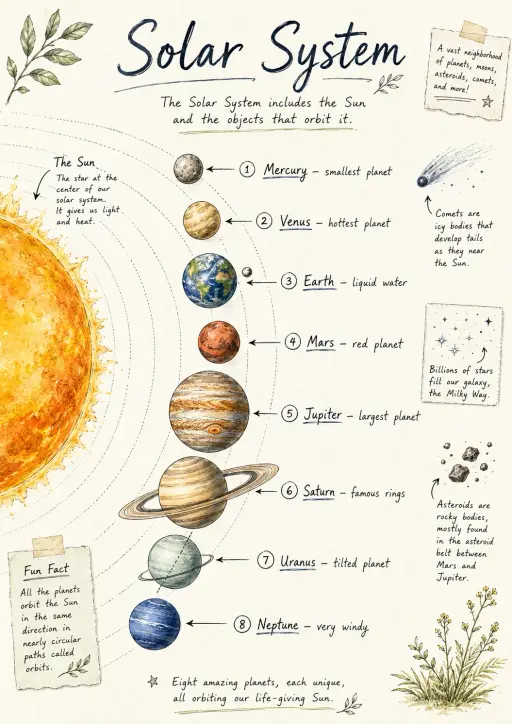 Solar System
The Solar System includes the Sun
and the objects that orbit it.
A vast neighborhood
of planets, moons,
asteroids, comets,
and more!
The Sun
The star at the
center of our
solar system.
It gives us light
and heat.
1 Mercury – smallest planet
2 Venus – hottest planet
3 Earth – liquid water
4 Mars – red planet
5 Jupiter – largest planet
6 Saturn – famous rings
7 Uranus – tilted planet
8 Neptune – very windy
Comets are
icy bodies that
develop tails
as they near
the Sun.
Billions of stars
fill our galaxy,
the Milky Way.
Asteroids are
rocky bodies,
mostly found
in the asteroid
belt between
Mars and
Jupiter.
Fun Fact
All the planets
orbit the Sun
in the same
direction in
nearly circular
paths called
orbits.
Eight amazing planets, each unique,
all orbiting our life-giving Sun.